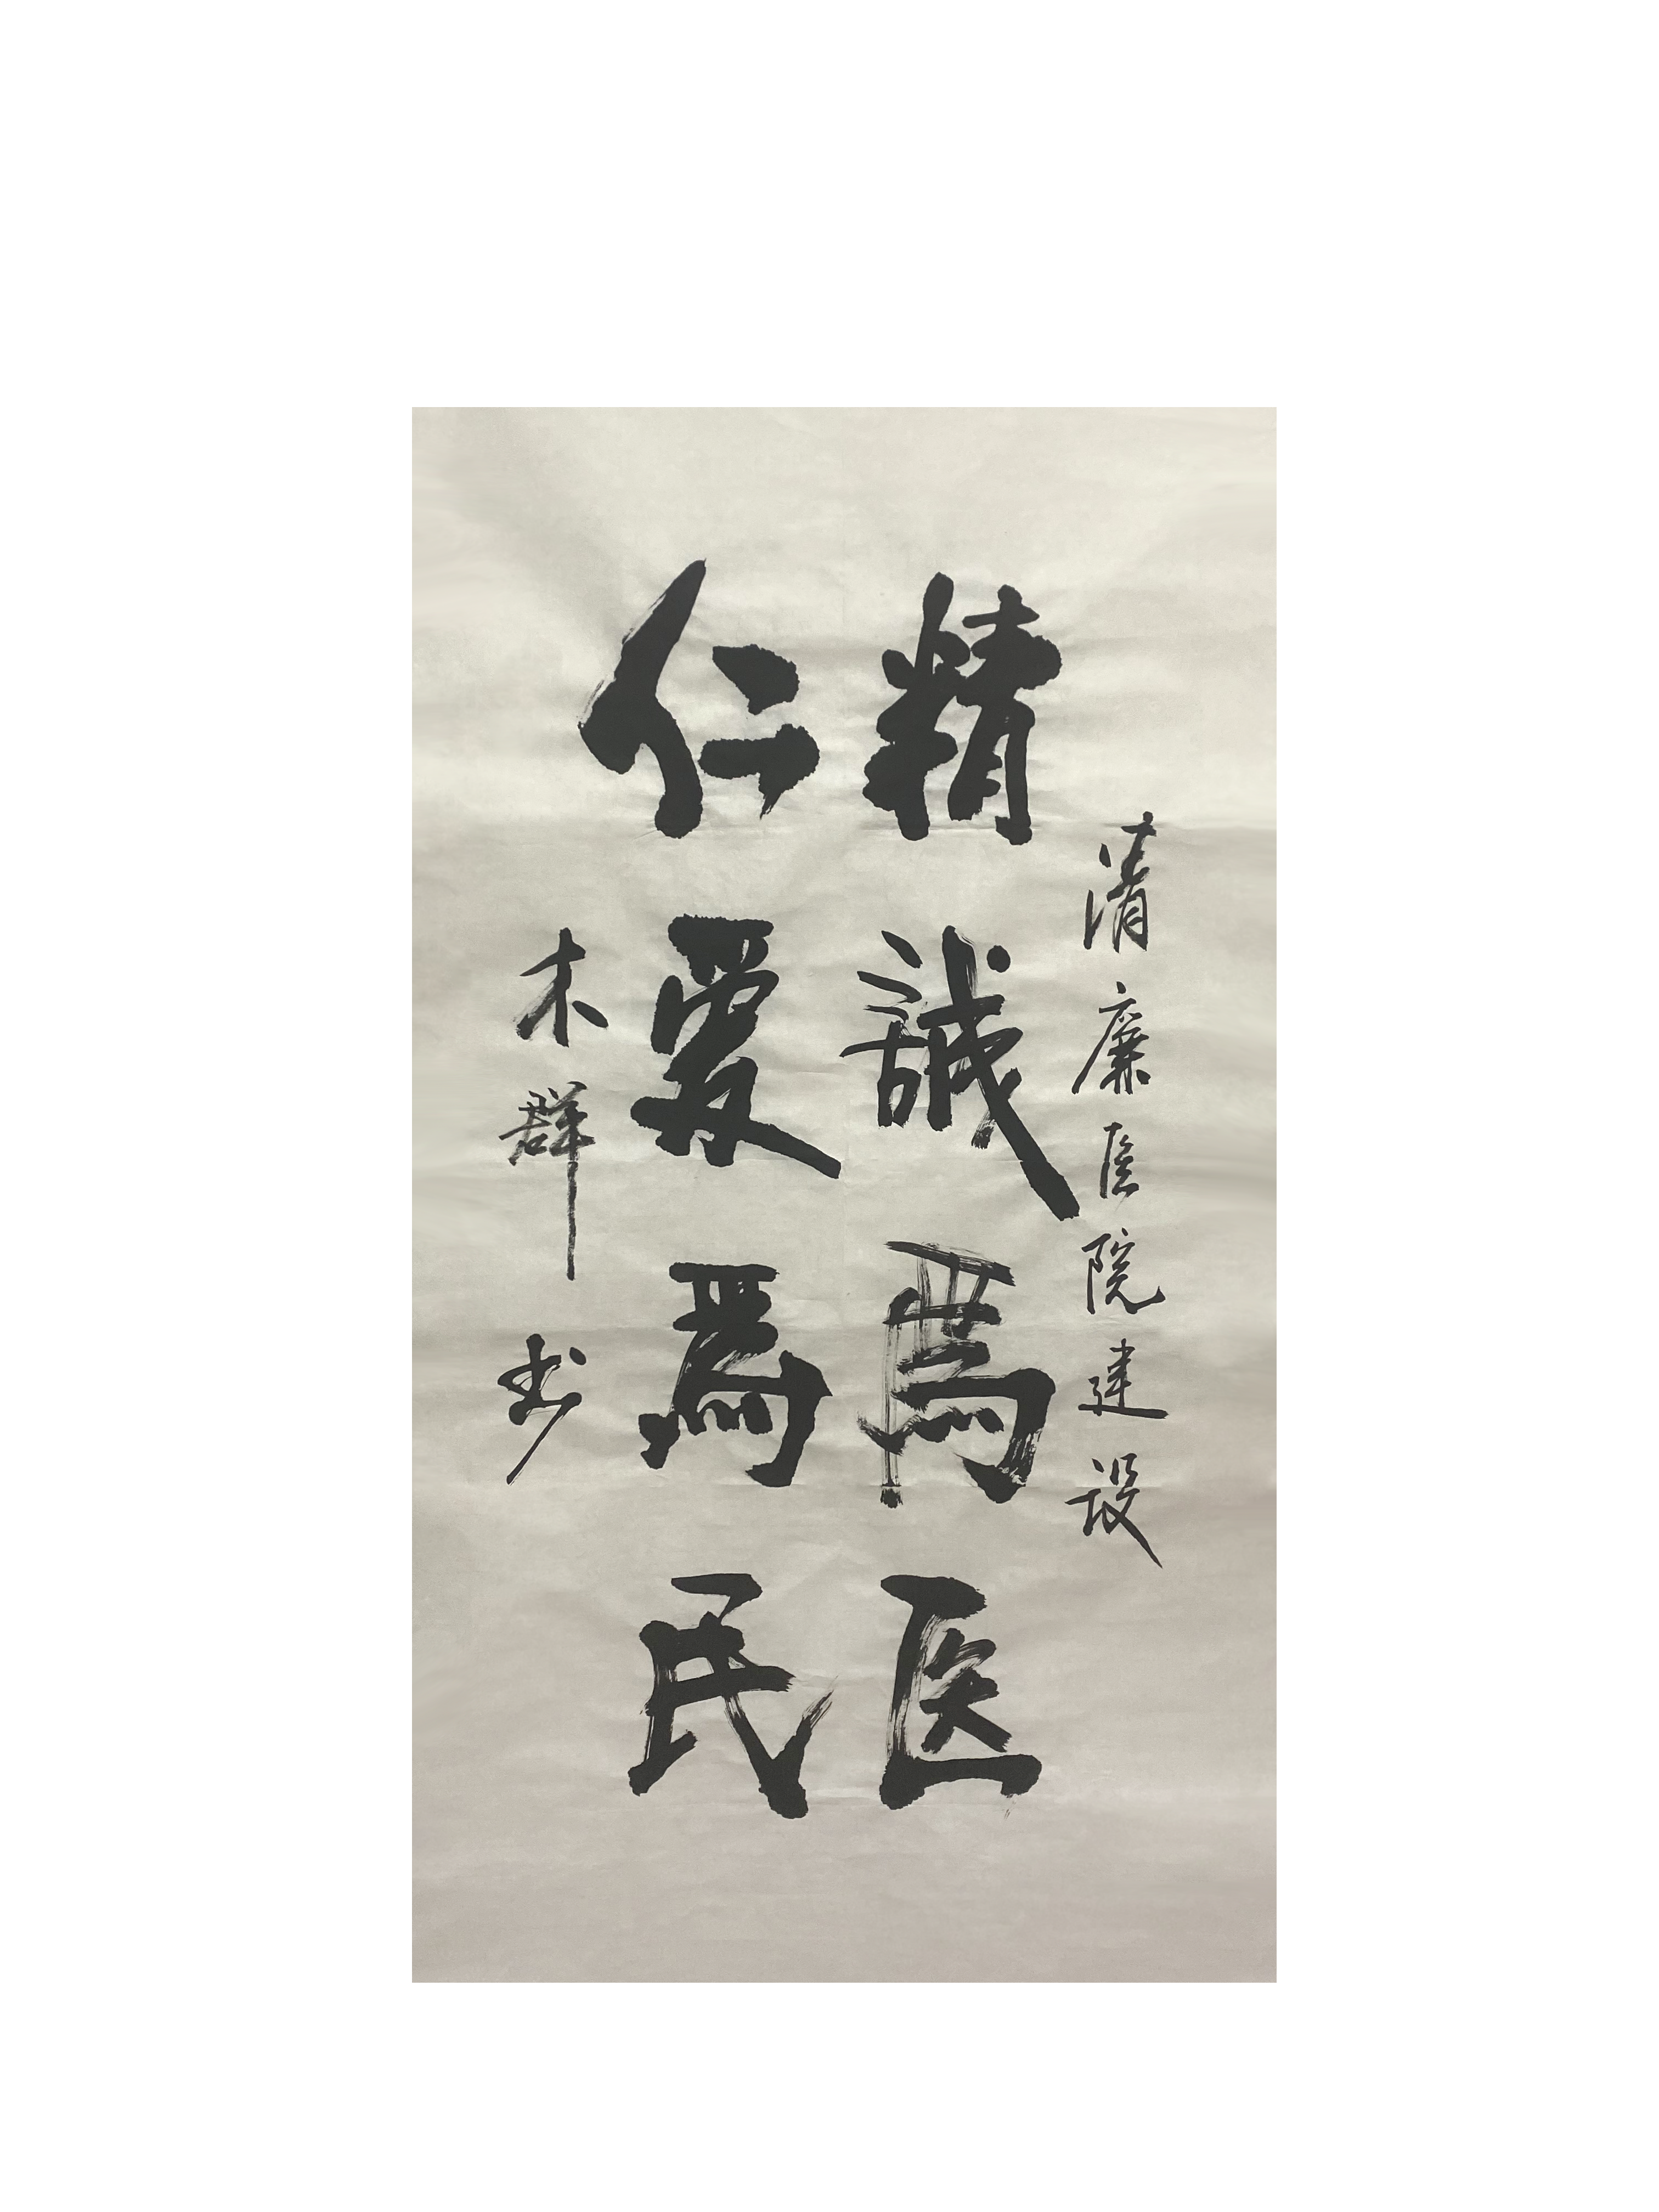 清廉医院建设
精誠爲医
仁爱爲民
木群书